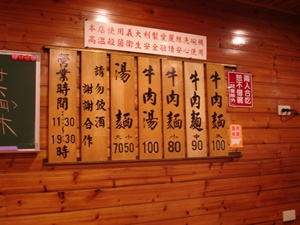 本店使用義大利製愛麗絲洗碗機
高溫殺菌衛生安全敬請安心使用
兩人合吃
牛肉麵 大 100
牛肉麵 中 90
牛肉麵 小 80
牛肉湯 100
湯麵 大 小 70 50
請勿飲酒
謝謝合作
營業時間:11:30
19:30